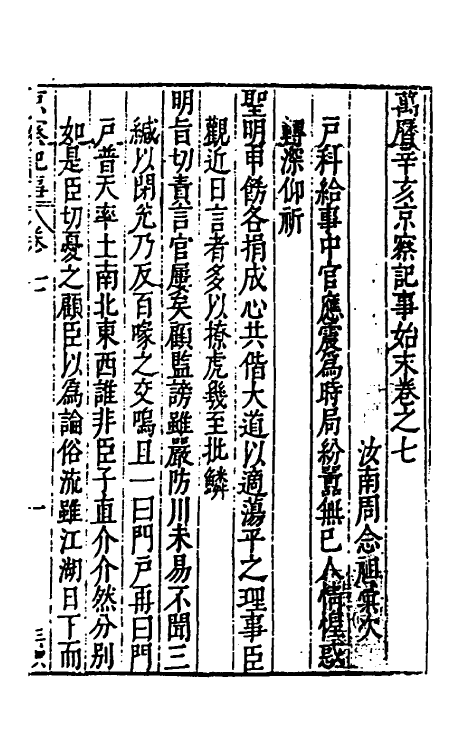 萬曆辛亥京察記事始末卷之七
汝南周念祖彙次
戶科給事中官應震為時局紛囂無已人情惶惑
轉深仰祈
聖明申飭各捐成心共偕大道以適蕩平之理事臣
觀近日言者多以撩虎幾至批鱗
明旨切責言官屢矣顧監謗雖嚴防川未易不聞三
緘以閉兊乃反百喙之交鳴且一曰門戶再曰門
戶普天率土南北東西誰非臣子直介介然分別
如是臣切憂之顧臣以為論俗流雖江湖日下而
京察記事 卷七 一